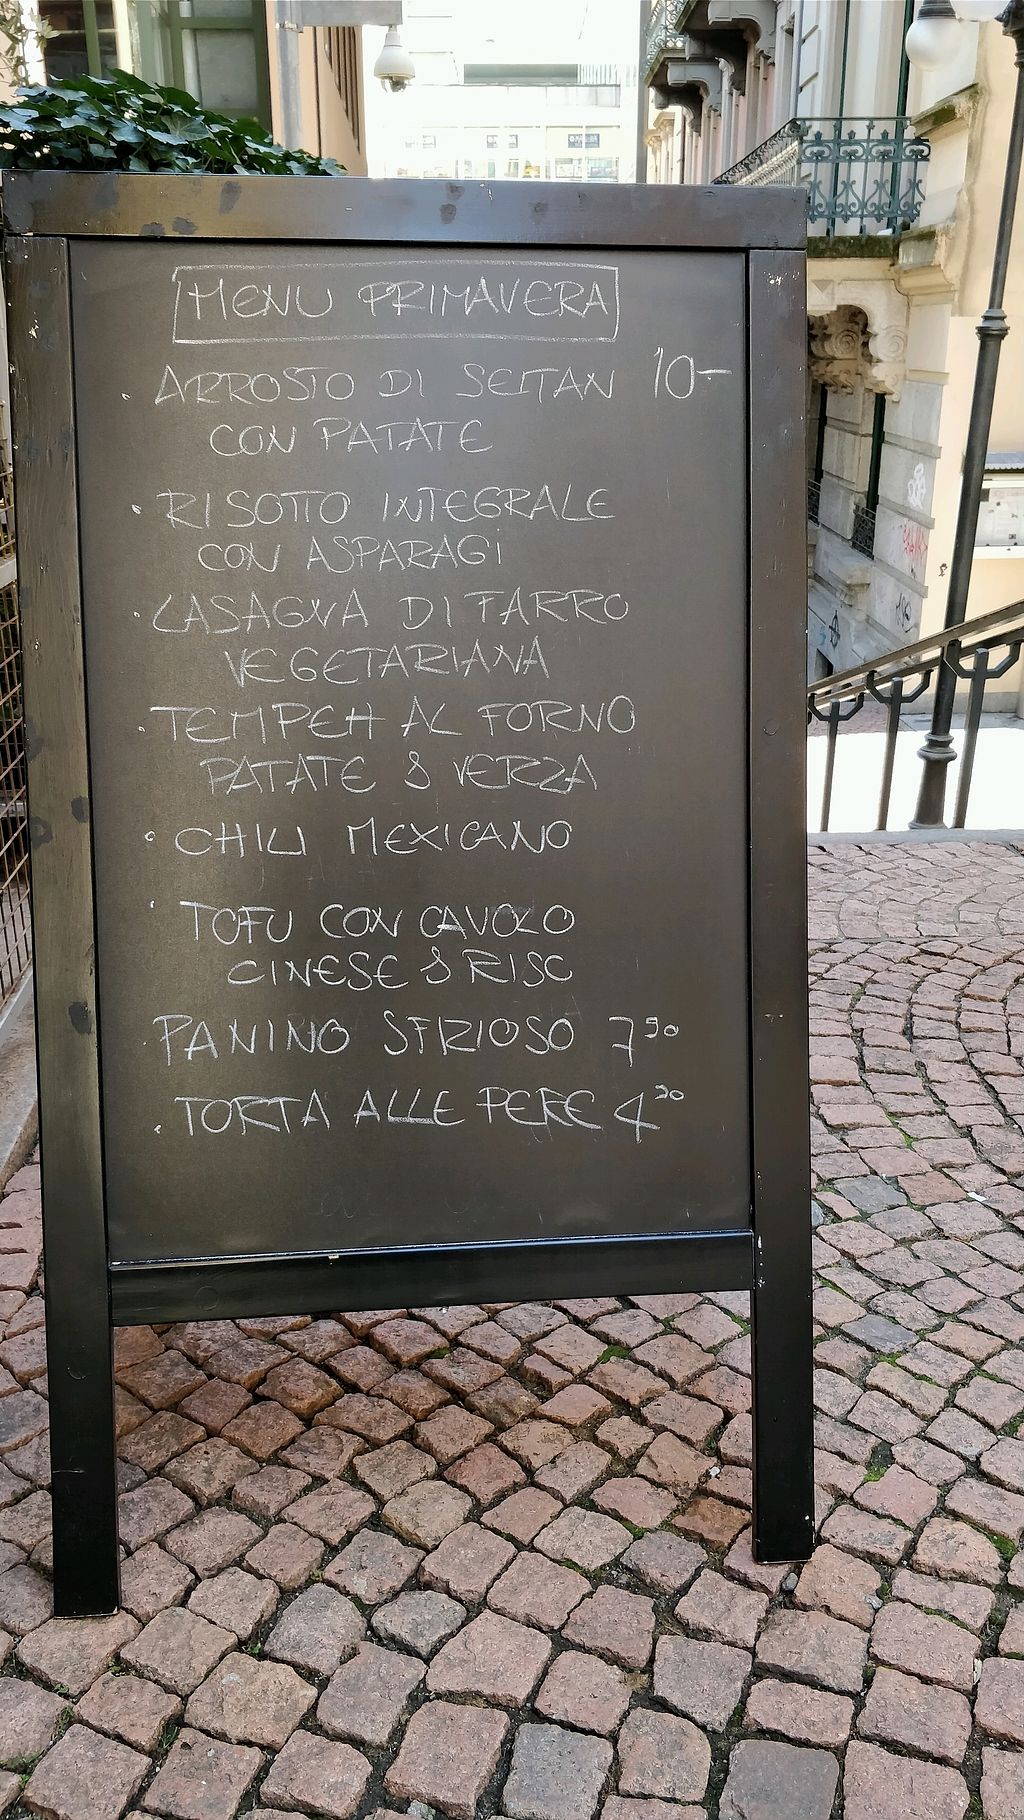 MENU PRIMAVERA
· ARROSTO DI SEITAN 10-
CON PATATE
· RISOTTO INTEGRALE
CON ASPARAGI
· LASAGNA DI FARRO
VEGETARIANA
· TEMPEH AL FORNO
PATATE & VERZA
· CHILI MEXICANO
· TOFU CON CAVOLO
CINESE & RISO
· PANINO SFIZIOSO 7⁵⁰
· TORTA ALLE PERE 4²⁰